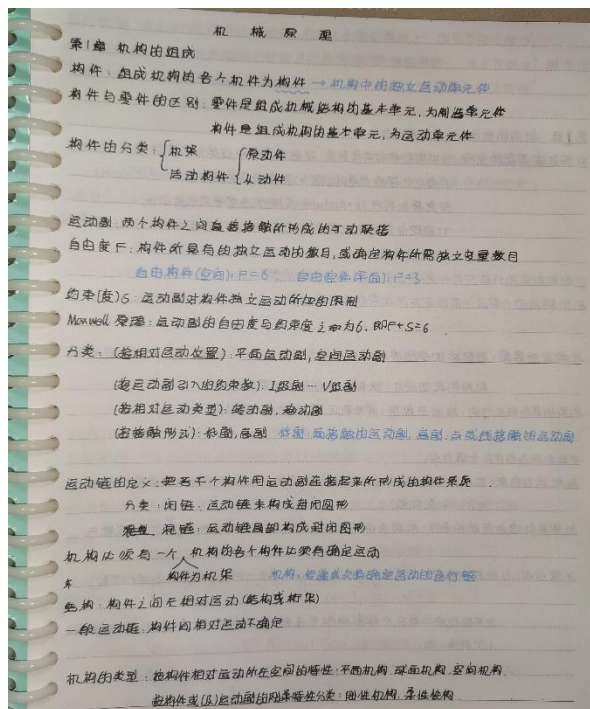 机 械 原 理
第1章 机构的组成
构件：组成机构的各个机件为构件 → 机构中的独立运动单元体
构件与零件的区别：零件是组成机械结构的基本单元，为制造单元体
构件是组成机构的基本单元，为运动单元体
构件的分类：{机架 {原动件
活动构件 从动件
运动副：两个构件之间直接接触所形成的可动联接
自由度F：构件所具有的独立运动的数目，或确定构件所需独立变量数目
自由构件(空间)：F=6 自由构件(平面)：F=3
约束[度]S：运动副对构件独立运动所加的限制
Maxwell 原理：运动副的自由度与约束度之和为6，即F+S=6
分类：(按相对运动位置)：平面运动副，空间运动副
(按运动副引入的约束数)：I级副…V级副
(按相对运动类型)：转动副，移动副
(按接触形式)：低副，高副 低副：面接触的运动副，高副：点或线接触的运动副
运动链的定义：把若干个构件用运动副连接起来所形成的构件系统．
分类：闭链：运动链未构成封闭图形
混链：运动链局部构成封闭图形
机构必须有一个 机构的各个构件必须有确定运动
构件为机架
结构：构件之间无相对运动(结构或桁架)
一般运动链：构件间相对运动不确定
机构的类型：按构件相对运动所在空间的特性：平面机构．球面机构．空间机构．
按构件或(及)运动副的刚柔特性分类：刚性机构．柔性机构